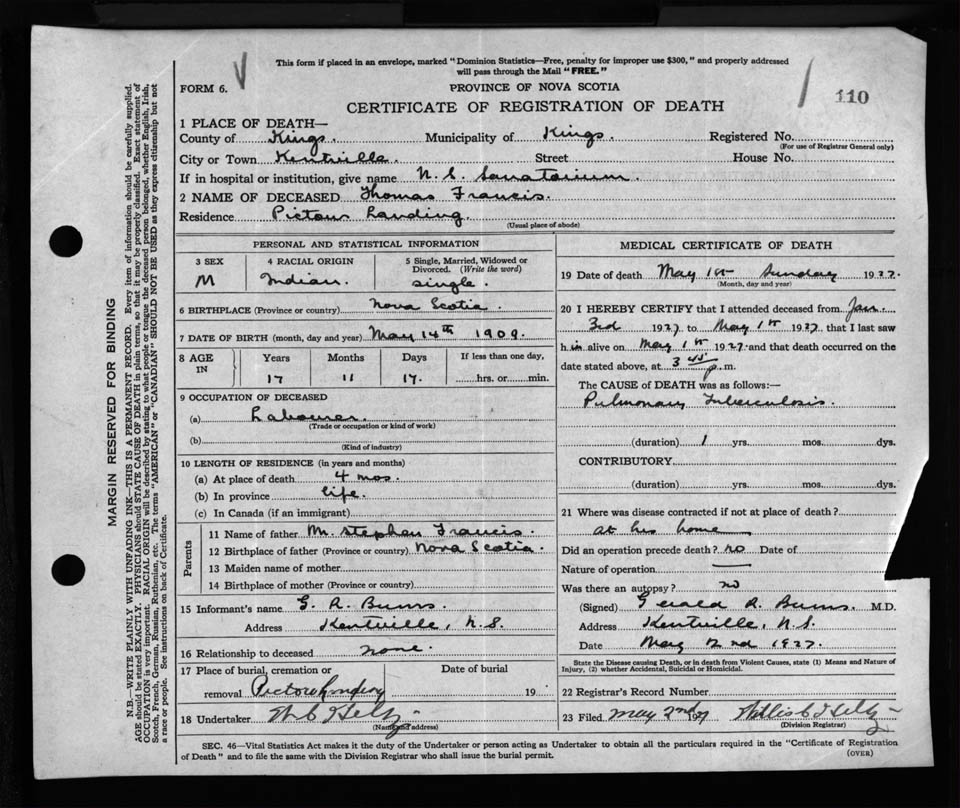 This form if placed in an envelope, marked "Dominion Statistics—Free, penalty for improper use $300," and properly addressed
will pass through the Mail "FREE."
FORM 6.
PROVINCE OF NOVA SCOTIA
CERTIFICATE OF REGISTRATION OF DEATH
110
1 PLACE OF DEATH—
County of Kings. Municipality of Kings. Registered No.
(For use of Registrar General only)
City or Town Kentville. Street House No.
If in hospital or institution, give name N. S. Sanatorium.
2 NAME OF DECEASED Thomas Francis.
Residence Pictou Landing.
(Usual place of abode)
PERSONAL AND STATISTICAL INFORMATION
3 SEX 4 RACIAL ORIGIN 5 Single, Married, Widowed or
Divorced. (Write the word)
M Indian. single.
6 BIRTHPLACE (Province or country) Nova Scotia.
7 DATE OF BIRTH (month, day and year) May 14th 1909.
8 AGE IN Years Months Days If less than one day,
17 11 17. hrs. or min.
9 OCCUPATION OF DECEASED
(a) Labourer.
(Trade or occupation or kind of work)
(b)
(Kind of industry)
10 LENGTH OF RESIDENCE (in years and months)
(a) At place of death 4 mos.
(b) In province life.
(c) In Canada (if an immigrant)
Parents
11 Name of father M. Stephen Francis.
12 Birthplace of father (Province or country) Nova Scotia.
13 Maiden name of mother
14 Birthplace of mother (Province or country)
15 Informant's name G. R. Burns.
Address Kentville, N.S.
16 Relationship to deceased none.
17 Place of burial, cremation or Date of burial
removal Pictou Landing 19
18 Undertaker
(Name and address)
MEDICAL CERTIFICATE OF DEATH
19 Date of death May 1st Sunday 1927.
(Month, day and year)
20 I HEREBY CERTIFY that I attended deceased from Jan.
3rd 1927 to May 1st 1927, that I last saw
h im alive on May 1st 1927 and that death occurred on the
date stated above, at 3 45 p. m.
The CAUSE of DEATH was as follows:—
Pulmonary Tuberculosis.
(duration) 1 yrs. mos. dys.
CONTRIBUTORY
(duration) yrs. mos. dys.
21 Where was disease contracted if not at place of death?
at his home
Did an operation precede death? no Date of
Nature of operation
Was there an autopsy? no
(Signed) Gerald R. Burns. M.D.
Address Kentville, N.S.
Date May 2nd 1927.
State the Disease causing Death, or in death from Violent Causes, state (1) Means and Nature of
Injury, (2) whether Accidental, Suicidal or Homicidal.
22 Registrar's Record Number
23 Filed May 2nd 1927
(Division Registrar)
SEC. 46—Vital Statistics Act makes it the duty of the Undertaker or person acting as Undertaker to obtain all the particulars required in the "Certificate of Registration
of Death" and to file the same with the Division Registrar who shall issue the burial permit.
(OVER)
MARGIN RESERVED FOR BINDING
N.B.—WRITE PLAINLY WITH UNFADING INK—THIS IS A PERMANENT RECORD. Every item of information should be carefully supplied.
AGE should be stated EXACTLY. PHYSICIANS should STATE CAUSE OF DEATH in plain terms, so that it may be properly classified. Exact statement of
OCCUPATION is very important. RACIAL ORIGIN will be described by stating to what people or tongue the deceased person belonged, whether English, Irish,
Scotch, French, German, Russian, Ruthenian, etc. The terms "AMERICAN" or "CANADIAN" SHOULD NOT BE USED as they express citizenship but not
a race or people. See instructions on back of Certificate.